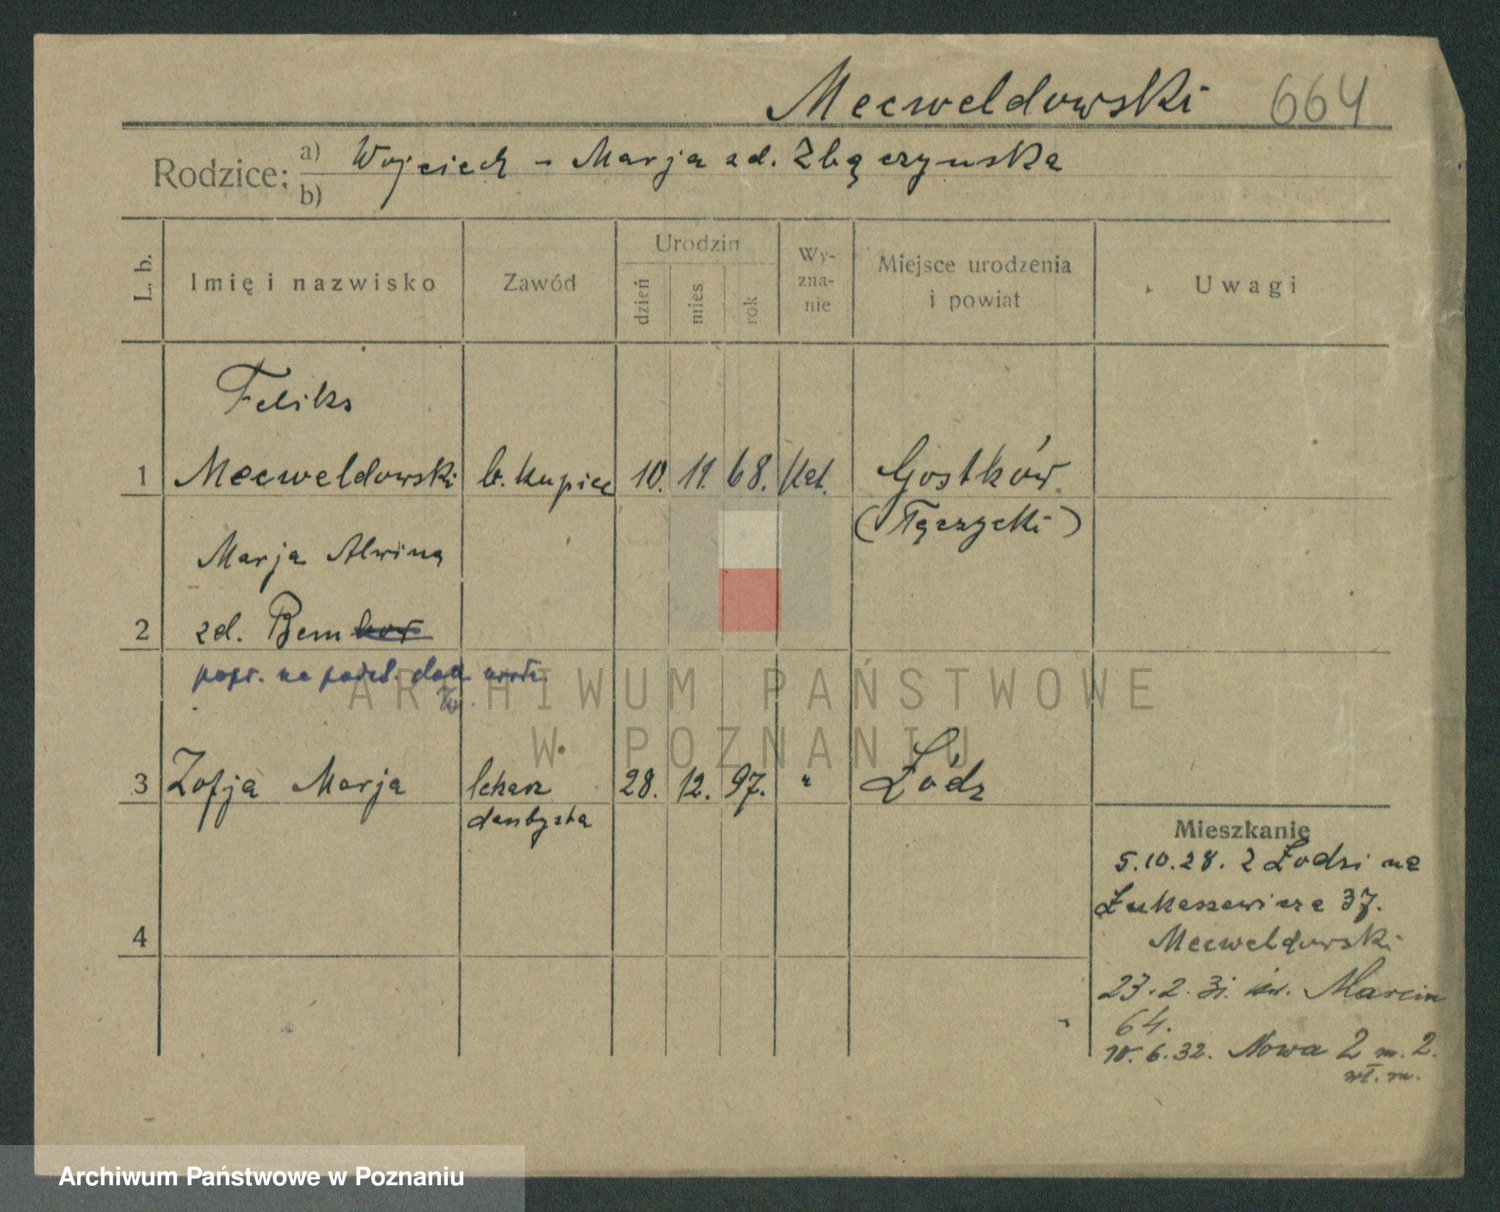 Mecweldowski 664
Rodzice: a) Wojciech - Marja zd. Zbączynska
b)
L. b. Imię i nazwisko Zawód Urodzin dzień mies rok Wy-zna-nie Miejsce urodzenia i powiat Uwagi
Feliks
1 Mecweldowski b. kupiec 10. 11. 68. Kat. Gostków
(Łęczycki)
Marja Alwina
2 zd. Bem
popr. na podst. dok. urodz.
3 Zofja Marja lekarz 28. 12. 97. " Łódz
dentystka
Mieszkanie
5.10.28. z Łodzi na
Łukaszewicza 37.
4
Mecweldowski
23.2.31. św. Marcin
64.
10.6.32. Nowa 2 m. 2.
wł. m.
ARCHIWUM PAŃSTWOWE
W POZNANIU
Archiwum Państwowe w Poznaniu